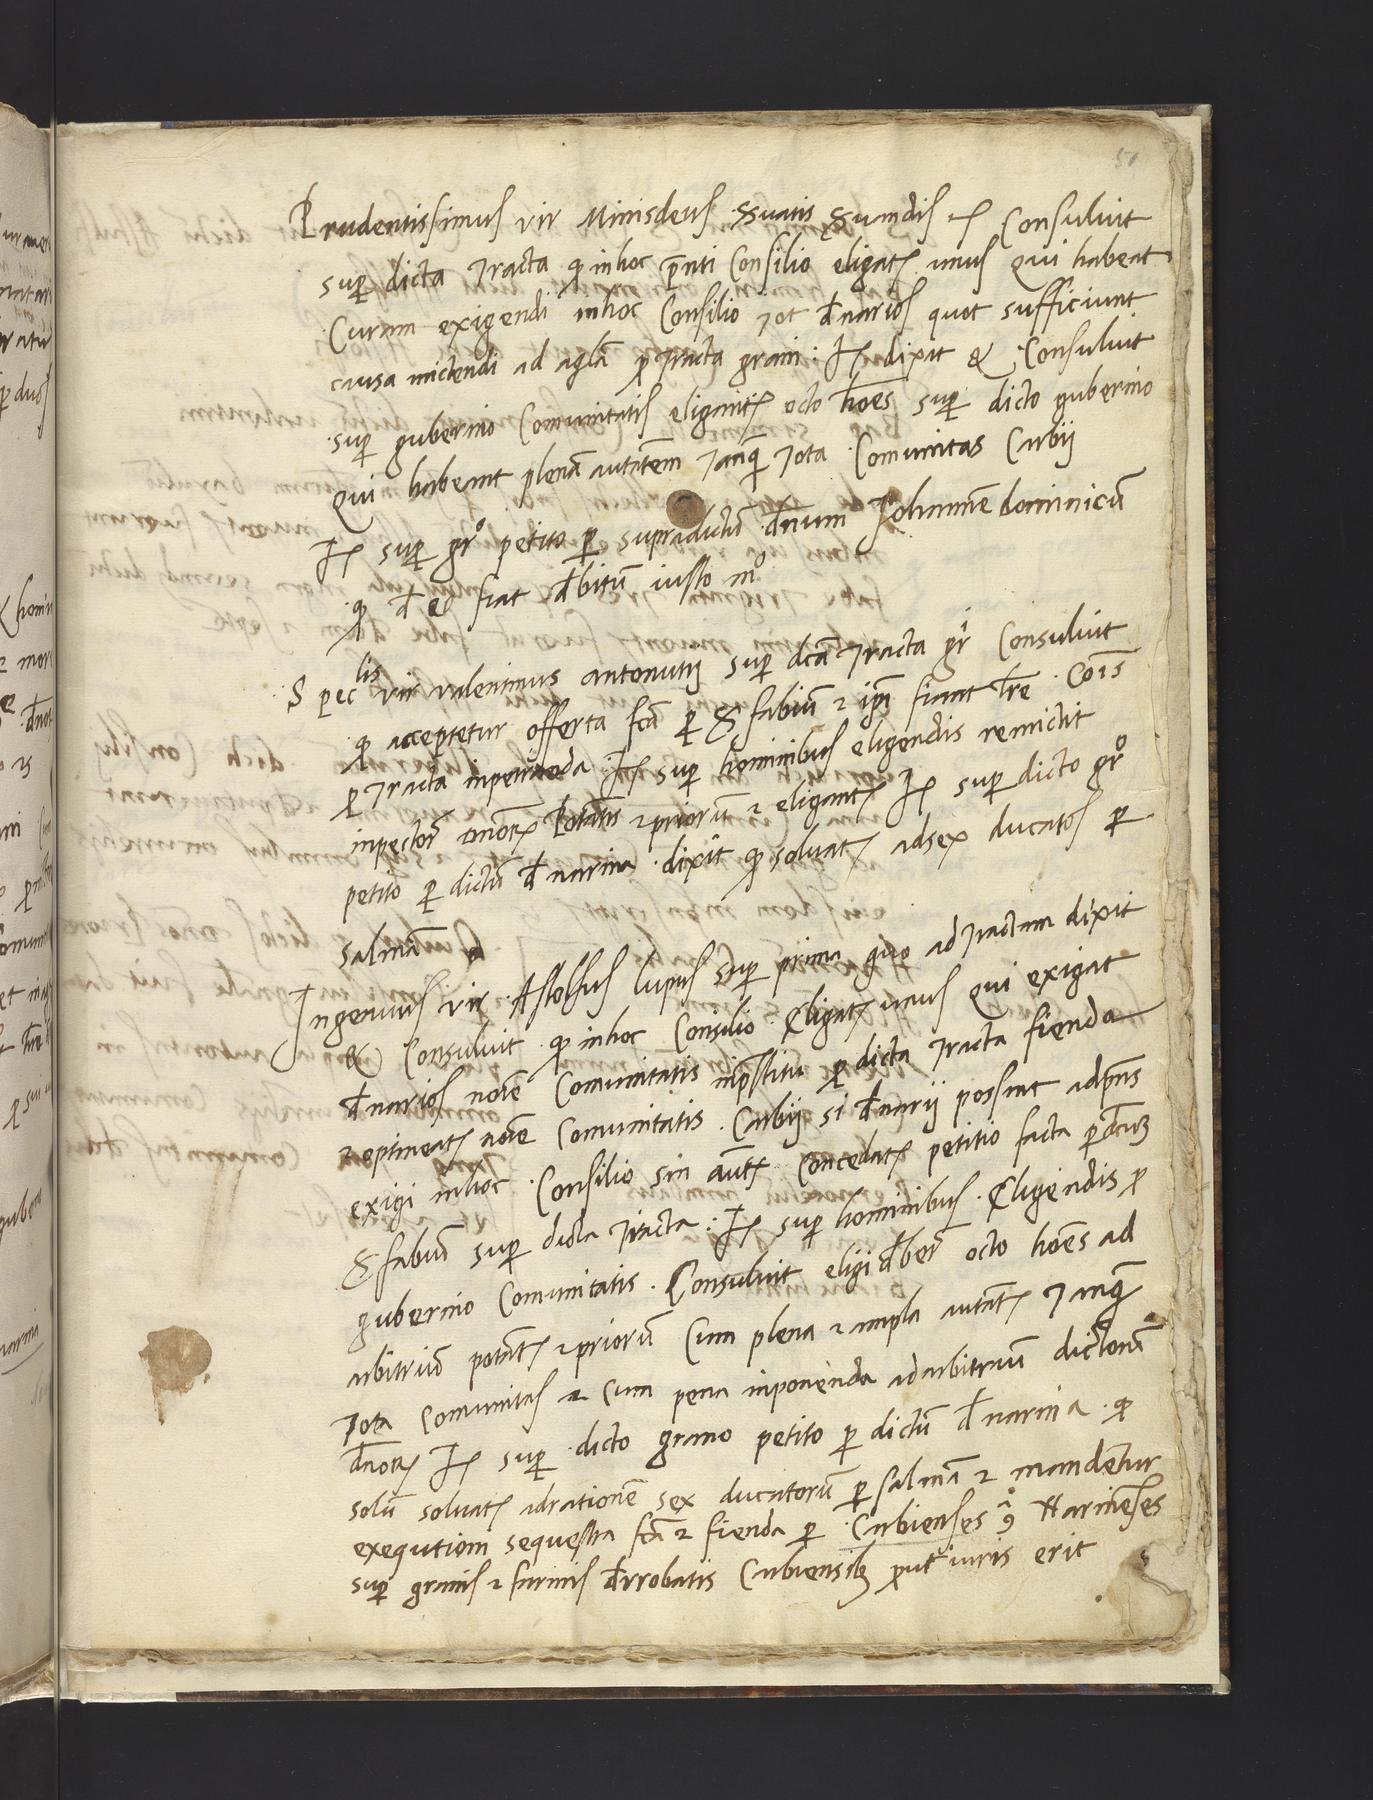 51
Prudentissimus vir Minisdeus Consuluit
sup dicta tracta qp inhoc pñti Consilio eligatr unus qui habeat
Curam exigendi inhoc Consilio tot dnarios quot sufficiunt
causa mictendi ad aglã p tracta grani: It dixit & Consuluit
sup guberno Comunitatis eligantr octo hoẽs sup dicto guberino
qui habeant plenã autãtem tanqȝ tota Comunitas Carbij
It sup grº petito p supradictũ dnum Johannẽ dominicũ
qp d eo fiat dbitũ iusto mº
Speclis vir valentinus antonutij sup dcã tracta grⁱ Consuluit
qp acceptetur offerta fcã p S fabiũ z ipi fiant lrẽ Coĩs
p tracta inpetranda It sup hominibus eligendis remictit
inpectorẽ dnor Potãtis z priorũ z eligantr It sup dicto grº
petito p dictũ dnarina dixit qp soluatr adsex ducatos p
salmã
Ingenuus vir Astolfus lupus sup prima quo ad tractam dixit
& Consuluit qp inhoc Consilio Eligatr unus qui exigat
dnarios noĩe Comunitatis inpstitu p dicta tracta fienda
z optineatr noĩe Comunitatis Carbij si dnarij possunt adpñs
exigi inhoc Consilio sin autr Concedatr petitio facta p dcũ
S fabiũ sup dicta tracta: It sup hominibus Eligendis p
guberino Comunitatis. Consuluit eligi dberẽ octo hoẽs ad
arbitriũ potãtr z priorũ Cum plena z ampla autãtr tanqȝ
tota Comunitas z cum pena inponenda adarbitrium dictorũ
dnorr It sup dicto grano petito p dictũ dnarina qp
solũ soluatr adrationẽ sex ducatorũ p salmã z mandentur
exequtioni sequestra fcã z fienda p Carbienses 9º Narniẽses
sup granis z farinis drrobatis Carbiensibȝ put iuris erit